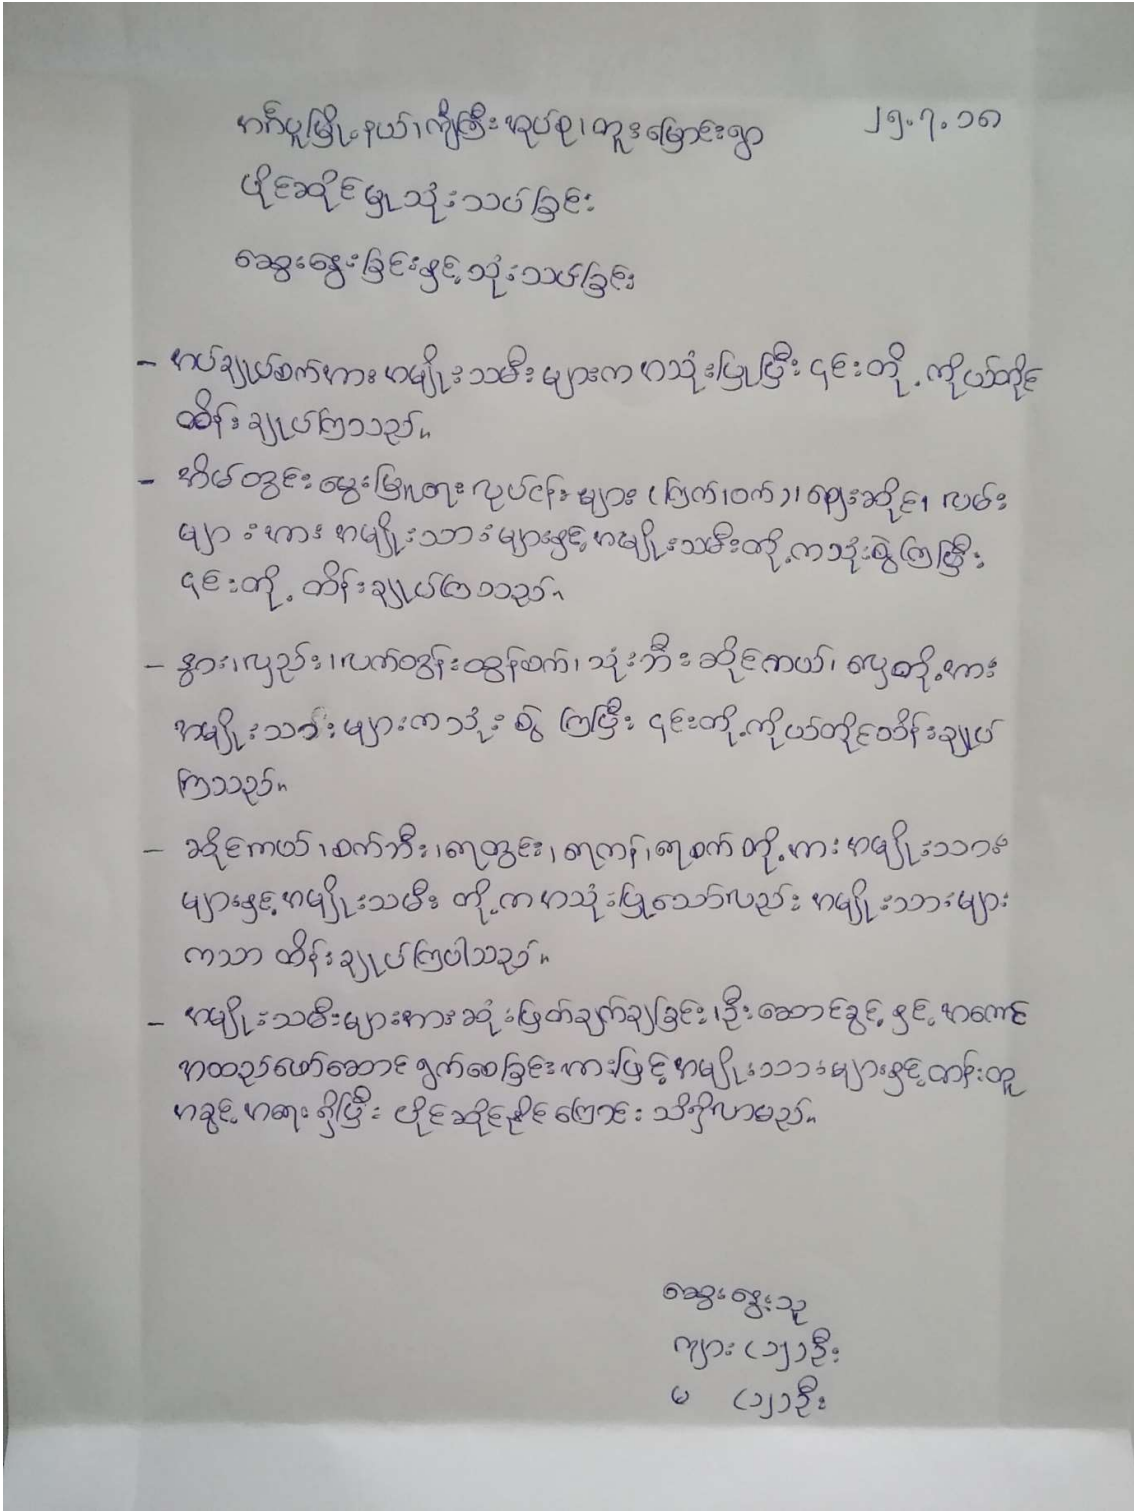 အင်္ဂပူမြို့နယ်၊ကျီကြီးအုပ်စု၊တူးမြောင်းရွာ ၂၅.၇.၁၈
ပိုင်ဆိုင်မှုသုံးသပ်ခြင်း
ဆွေးနွေးခြင်းနှင့်သုံးသပ်ခြင်း
- အပ်ချုပ်စက်အား အမျိုးသမီးများကအသုံးပြုပြီး ၎င်းတို့ကိုယ်တိုင်
ထိန်းချုပ်ကြသည်။
- အိမ်တွင်းမွေးမြူရေးလုပ်ငန်းများ (ကြက်၊ဝက်)၊စျေးဆိုင်၊ လမ်း
များအား အမျိုးသားများနှင့်အမျိုးသမီးတို့ကသုံးစွဲကြပြီး
၎င်းတို့ ထိန်းချုပ်ကြသည်။
- နွား၊လှည်း၊လက်တွန်းထွန်စက်၊သုံးဘီးဆိုင်ကယ်၊ လှေတို့အား
အမျိုးသားများကသုံးစွဲကြပြီး ၎င်းတို့ကိုယ်တိုင်ထိန်းချုပ်
ကြသည်။
- ဆိုင်ကယ်၊စက်ဘီး၊ရေတွင်း၊ရေကန်၊ရေစက်တို့အား အမျိုးသား
များနှင့်အမျိုးသမီးတို့ကအသုံးပြုသော်လည်း အမျိုးသားများ
ကသာ ထိန်းချုပ်ကြပါသည်။
- အမျိုးသမီးများအားဆုံးဖြတ်ချက်ချခြင်း၊ဦးဆောင်ခွင့်နှင့်အကောင်
အထည်ဖော်ဆောင်ရွက်စေခြင်းအားဖြင့်အမျိုးသားများနှင့်တန်းတူ
အခွင့်အရေးရှိပြီး ပိုင်ဆိုင်နိုင်ကြောင်း သိရှိလာမည်။
ဆွေးနွေးသူ
ကျား (၁၅)ဦး
မ (၁၂)ဦး